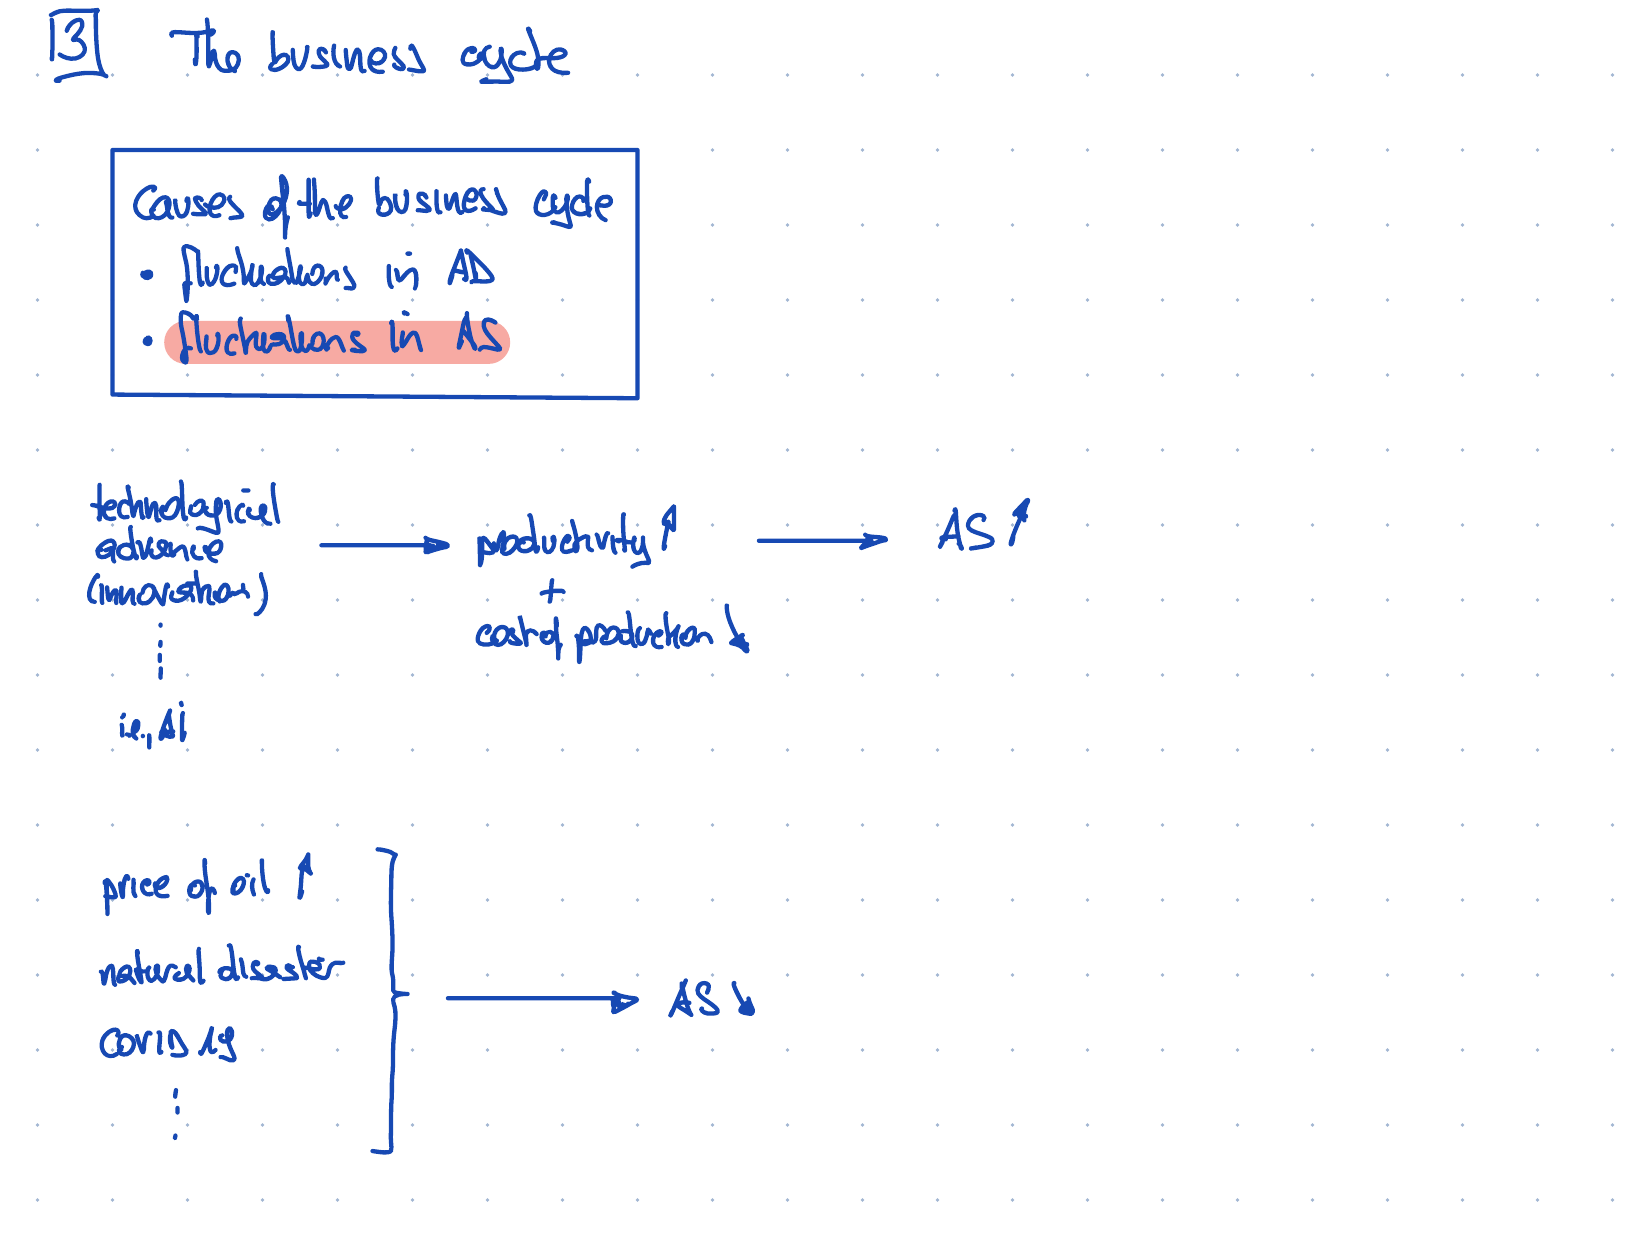 3 The business cycle
Causes of the business cycle
• fluctuations in AD
• fluctuations in AS
technological
advance
(innovation)
i.e., AI
productivity ↑
+
cost of production ↘
AS ↗
price of oil ↑
natural disaster
COVID 19
AS ↘